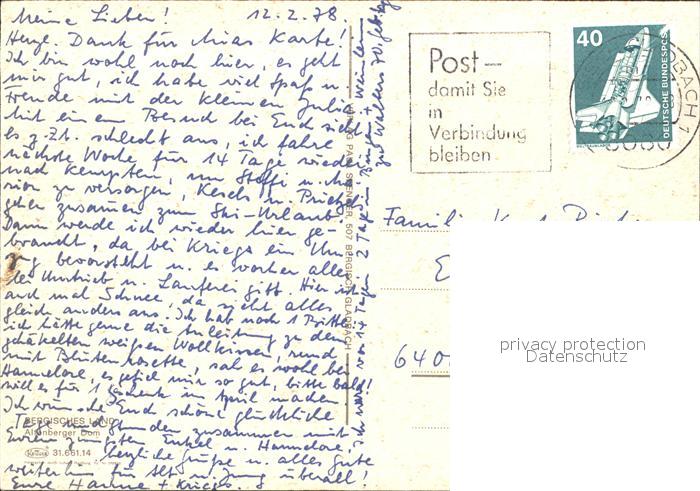 Meine Lieben! 12.2.78.
Herzl. Dank für Mias Karte!
Ich bin wohl noch hier, es geht
mir gut, ich habe viel Spaß u.
Freude mit der kleinen Julia
Mit einem Besuch bei Euch sieht
es z. Zt. schlecht aus, ich fahre
nächste Woche für 14 Tage wieder
nach Kempten, um Steffi u.
zu versorgen, Kesels u.
gehen zusammen zum Ski-Urlaub
Dann werde ich wieder hier ge-
braucht, da bei Kriegs ein Um-
zug bevorsteht u. es vorher aller-
lei Umtrieb u. Lauferei gibt. Hier ist
auch mal Schnee, da sieht alles
gleich anders aus. Ich hab noch 1 Bitte:
ich hätte gerne die Anleitung zu dem
gehäkelten weißen Wollkissen, rund
mit Blütenrosette, sah es wohl bei
Hannelore, es gefiel mir so gut, bitte bald!
will es für 1 Geschenk im April machen.
Ich wünsche Euch schöne glückliche
Tage und Stunden zusammen mit
Eurem jüngsten Enkel u. Hannelore.
herzliche Grüße u. alles Gute
weiterhin für Alt u. Jung überall!
Eure Hanne + Kriegs.
BERGISCHES LAND
Altenberger Dom
Krüger 31.661.14
507 BERGISCH GLADBACH
Ich war vor 14 Tagen 2 Tage in Bingen + Weinheim
zu Walters 70. Gebtag
Post –
damit Sie
in
Verbindung
bleiben
40
DEUTSCHE BUNDESPOST
Familie
640
privacy protection
Datenschutz